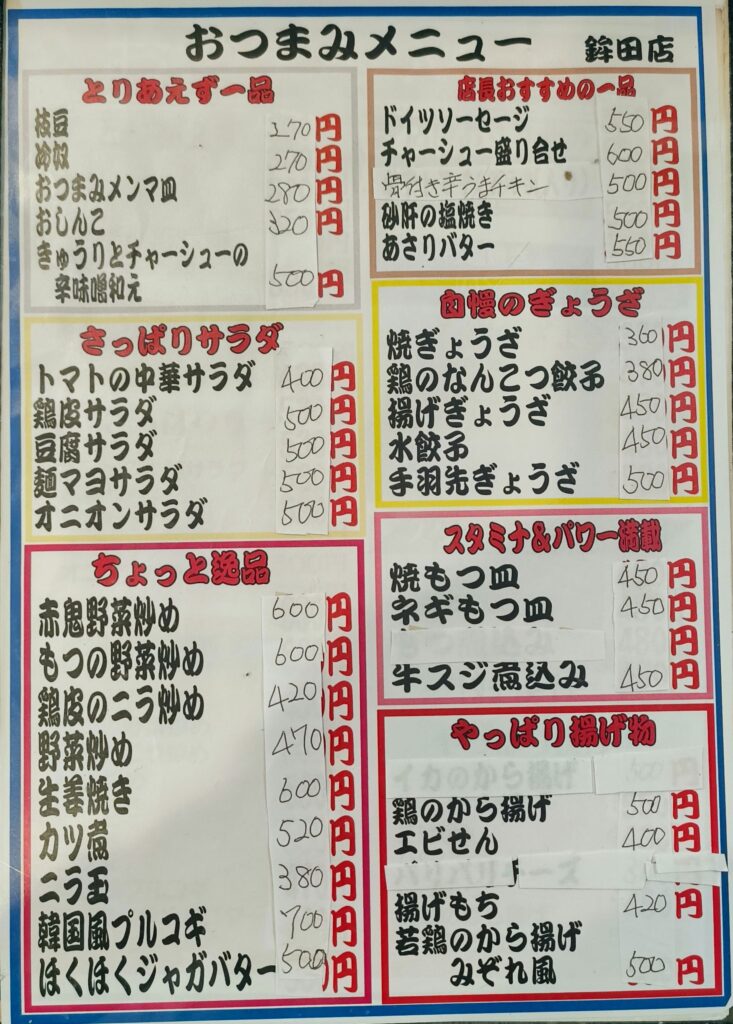 おつまみメニュー 鉾田店
とりあえず一品
枝豆 270円
冷奴 270円
おつまみメンマ皿 280円
おしんこ 320円
きゅうりとチャーシューの
辛味噌和え 500円
さっぱりサラダ
トマトの中華サラダ 400円
鶏皮サラダ 500円
豆腐サラダ 500円
麺マヨサラダ 500円
オニオンサラダ 500円
ちょっと逸品
赤鬼野菜炒め 600円
もつの野菜炒め 600円
鶏皮のニラ炒め 420円
野菜炒め 470円
生姜焼き 600円
カツ煮 520円
ニラ玉 380円
韓国風プルコギ 700円
ほくほくジャガバター 500円
店長おすすめの一品
ドイツソーセージ 550円
チャーシュー盛り合せ 600円
骨付き辛うまチキン 500円
砂肝の塩焼き 500円
あさりバター 550円
自慢のぎょうざ
焼ぎょうざ 360円
鶏のなんこつ餃子 380円
揚げぎょうざ 450円
水餃子 450円
手羽先ぎょうざ 500円
スタミナ&パワー満載
焼もつ皿 450円
ネギもつ皿 450円
もつ煮込み 480円
牛スジ煮込み 450円
やっぱり揚げ物
イカのから揚げ 500円
鶏のから揚げ 500円
エビせん 400円
パリパリチーズ
揚げもち 420円
若鶏のから揚げ
みぞれ風 500円